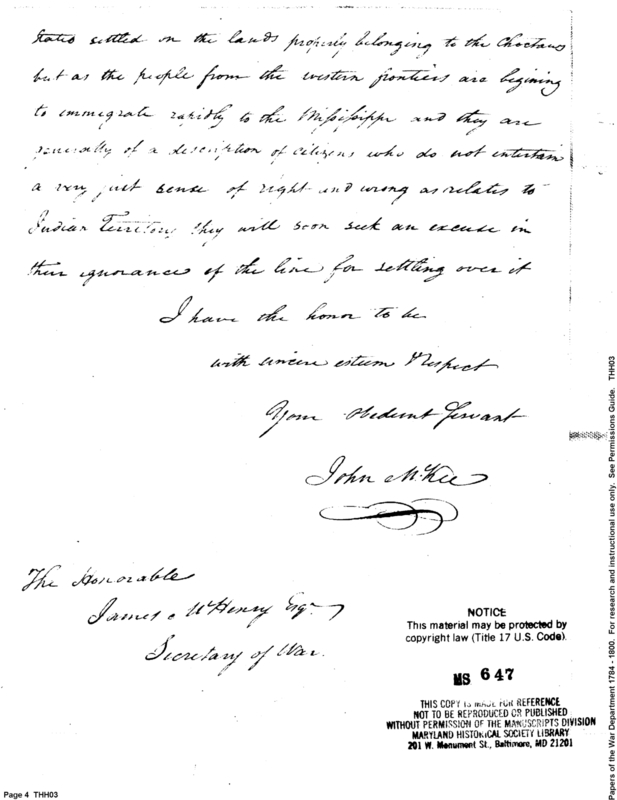 States settled on the lands properly belonging to the Choctaws
but as the people from the western frontiers are begining
to immigrate rapidly to the Mississippi and they are
generally of a description of citizens who do not entertain
a very just sense of right and wrong as relates to
Indian Territory they will soon seek an excuse in
their ignorance of the line for settling over it
I have the honor to be
with sincere esteem & Respect
Your obedient Servant
John McKee
The Honorable
James McHenry Esqr
Secretary of War.
NOTICE
This material may be protected by
copyright law (Title 17 U.S. Code).
MS 647
THIS COPY IS MADE FOR REFERENCE
NOT TO BE REPRODUCED OR PUBLISHED
WITHOUT PERMISSION OF THE MANUSCRIPTS DIVISION
MARYLAND HISTORICAL SOCIETY LIBRARY
201 W. Monument St., Baltimore, MD 21201
Page 4 THH03
Papers of the War Department 1784 - 1800. For research and instructional use only. See Permissions Guide. THH03